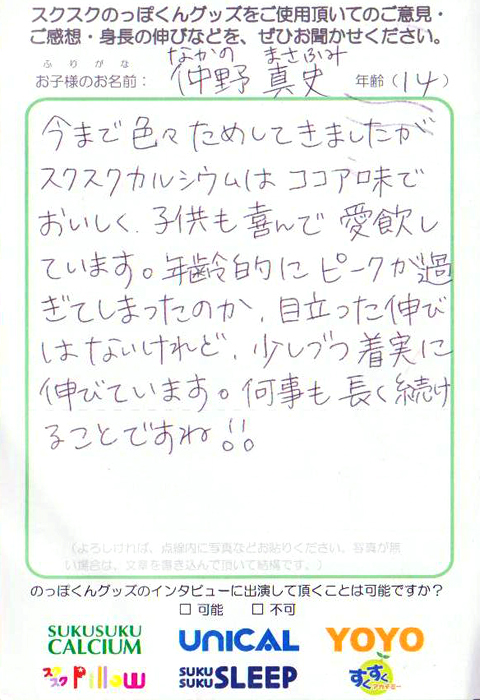 スクスクのっぽくんグッズをご使用頂いてのご意見・
ご感想・身長の伸びなどを、ぜひお聞かせください。
ふりがな なかの まさふみ
お子様のお名前: 仲野 真史 年齢(14)
今まで色々ためしてきましたが
スクスクカルシウムはココア味で
おいしく、子供も喜んで愛飲し
ています。年齢的にピークが過
ぎてしまったのか、目立った伸び
はないけれど、少しづつ着実に
伸びています。何事も長く続け
ることですね!!
(よろしければ、点線内に写真などお貼りください。写真が無
い場合は、文章を書き込んで頂いて結構です。)
のっぽくんグッズのインタビューに出演して頂くことは可能ですか?
□ 可能 □ 不可
SUKUSUKU CALCIUM UNICAL YOYO
スクスク Pillow SUKU SUKU SLEEP すくすくアカデミー